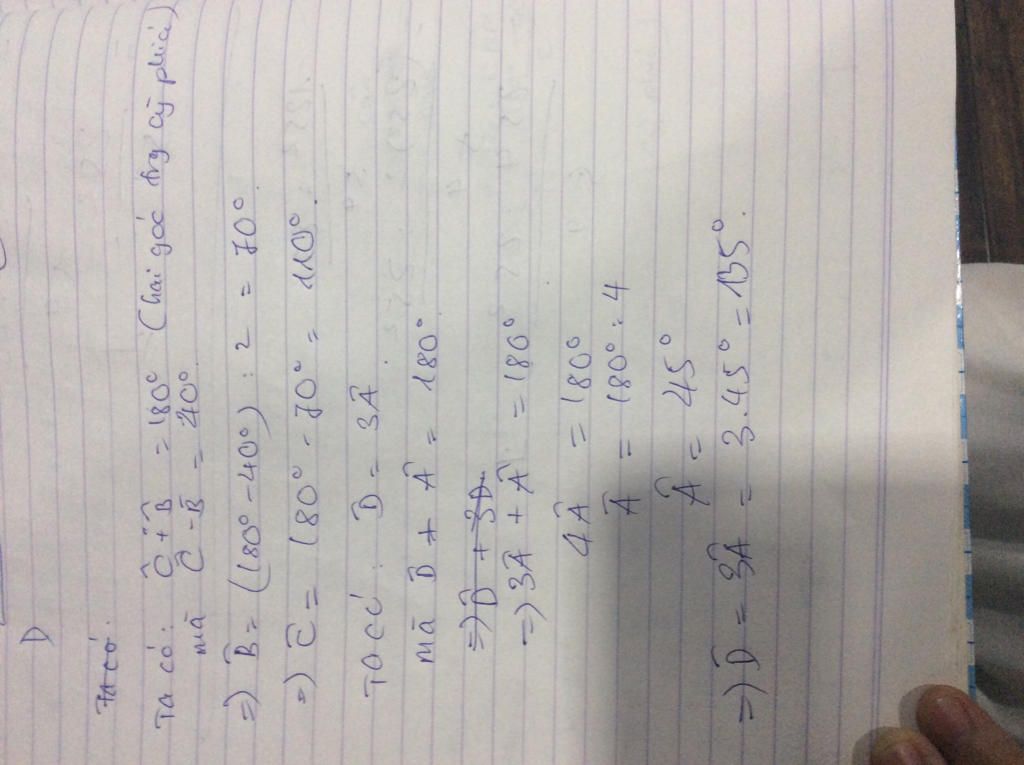 D
Ta có.
Ta có: Ĉ + B̂ = 180° (hai góc trg cùg phía)
mà Ĉ - B̂ = 40°.
=) B̂ = (180° - 40°) : 2 = 70°.
=) Ĉ = 180° - 70° = 110°.
Ta có: D̂ = 3Â.
mà D̂ + Â = 180°
=) D̂ + 3D
=) 3Â + Â = 180°
4Â = 180°
Â = 180° : 4
Â = 45°
=) D̂ = 3Â = 3.45° = 135°.